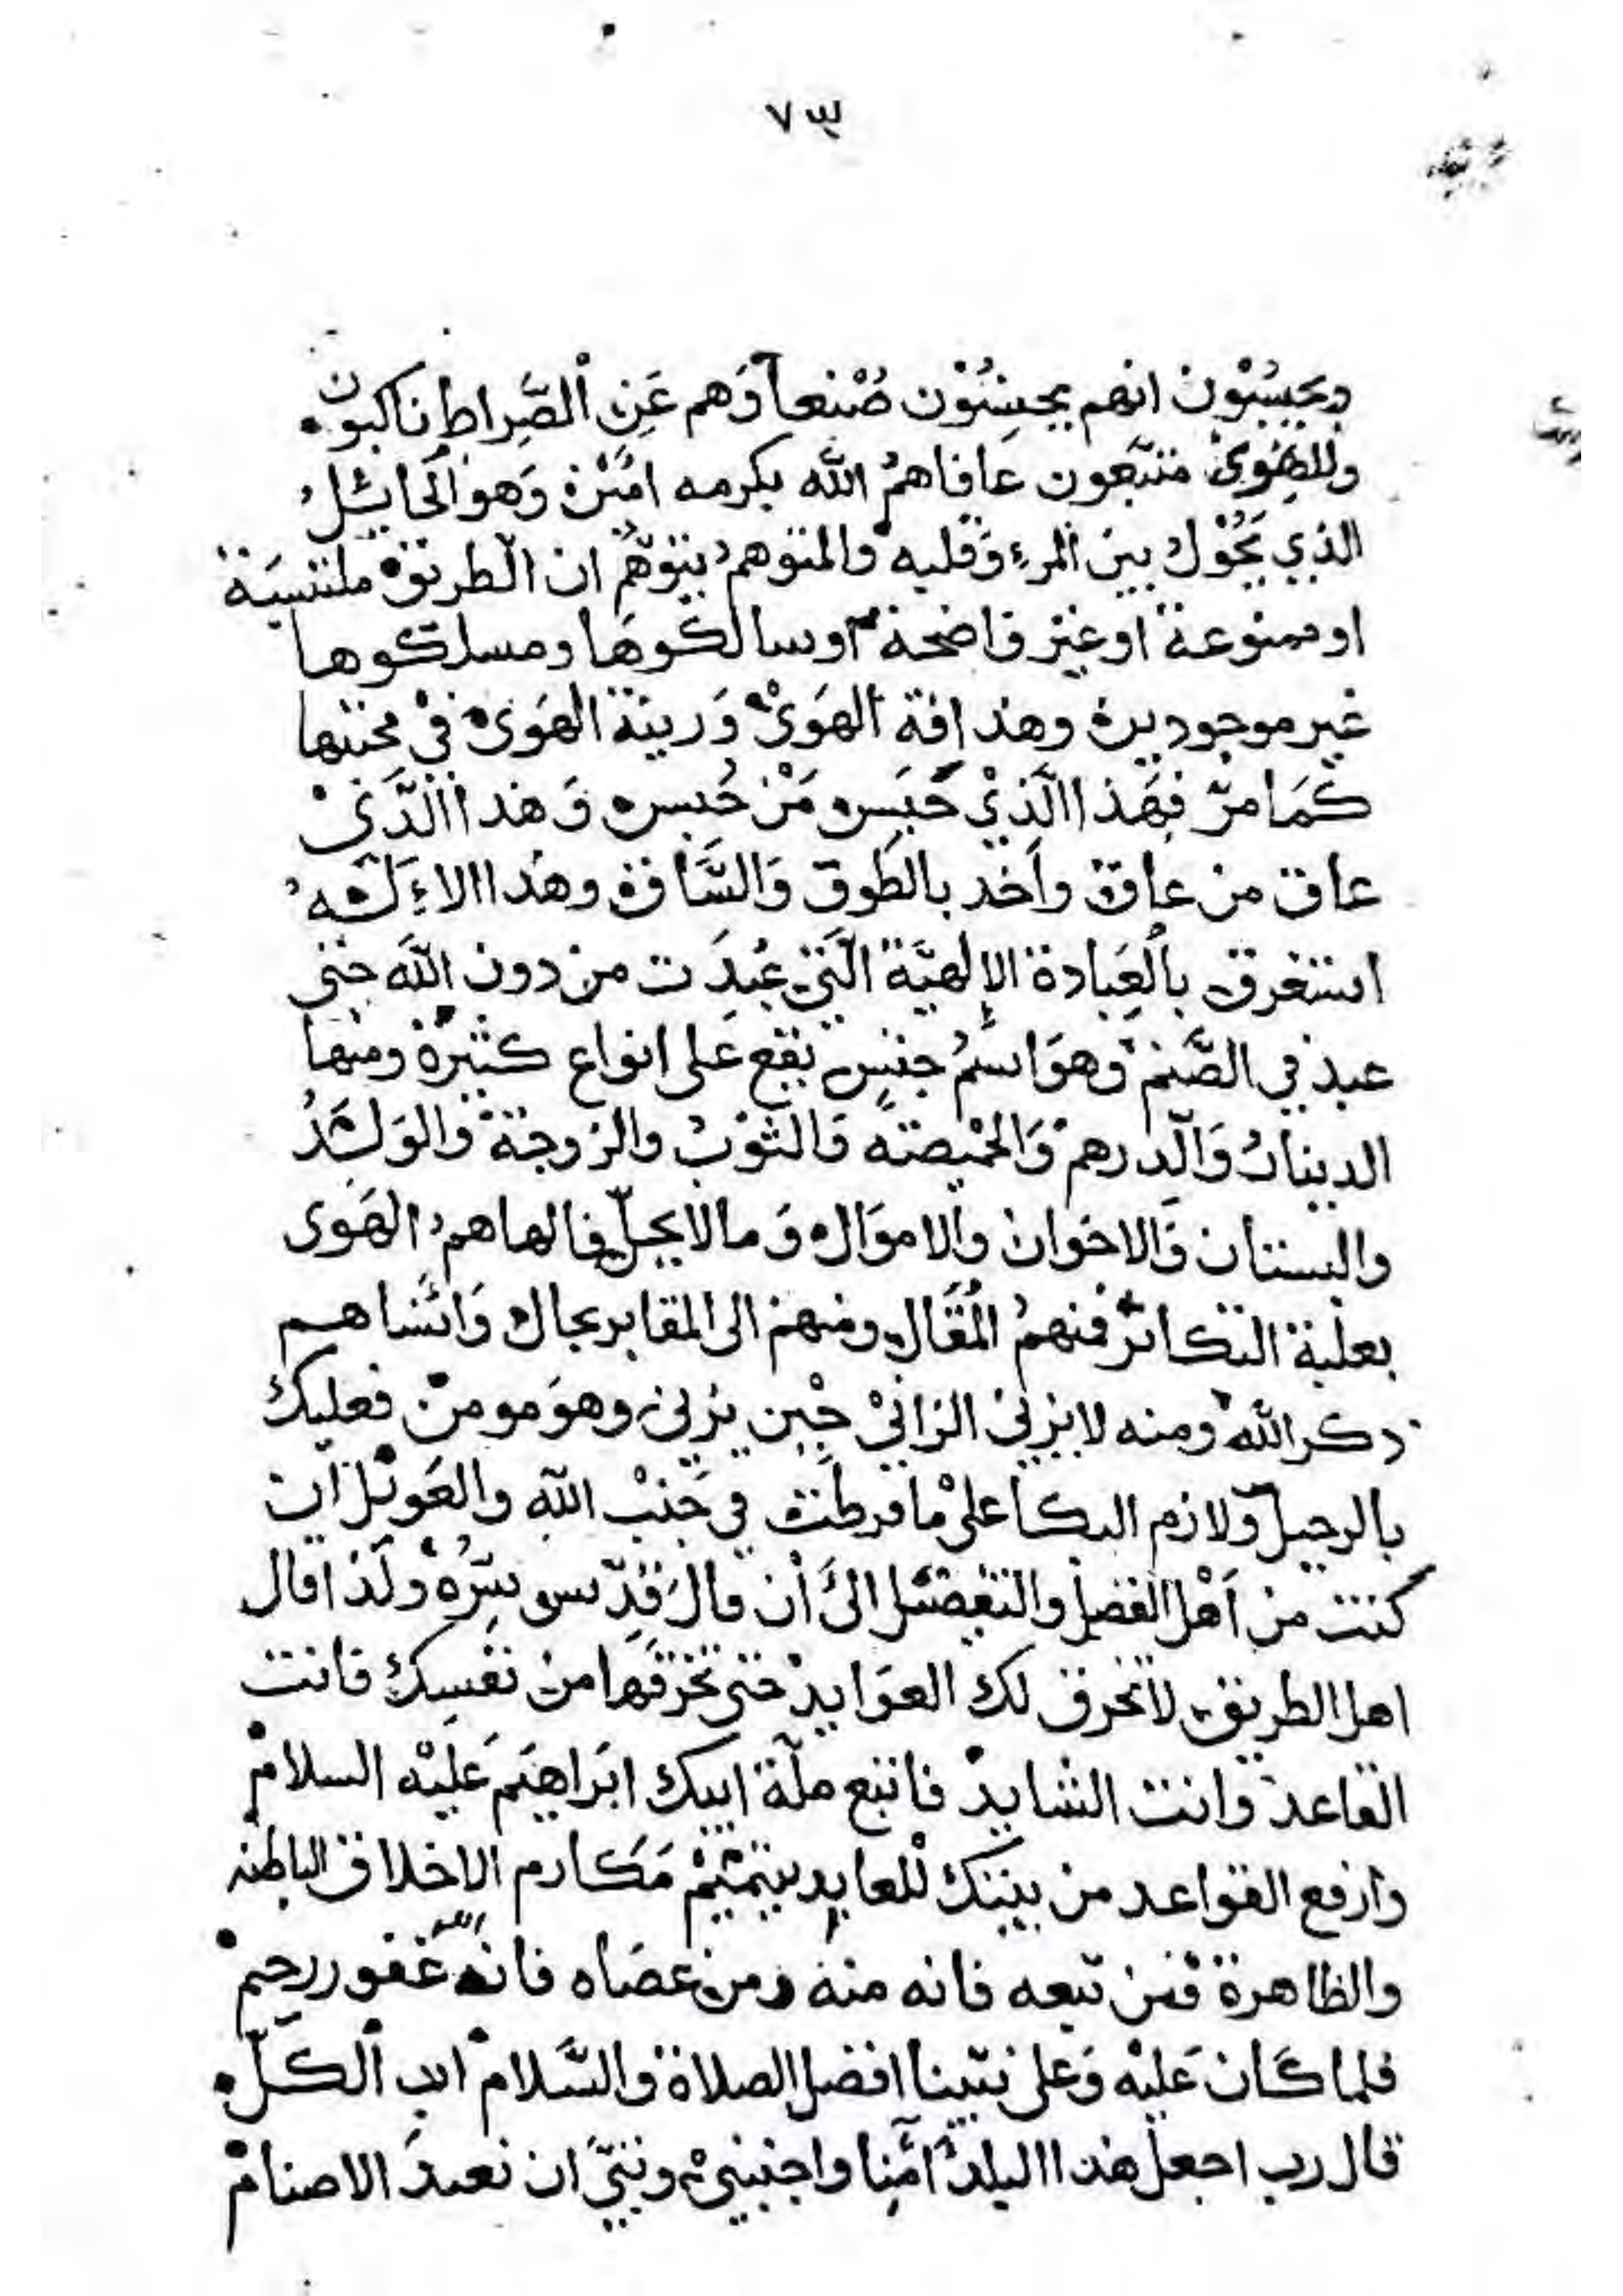 ٧٣
ويحسبون انهم يحسنون صنعا وهم عن الصراط ناكبون
وللهوى متبعون عافاهم الله بكرمه امين وهو الحايل
الذي يحول بين المرء وقلبه والمتوهم يتوهم ان الطريق ملتبسة
او ممنوعة او غير واضحة او سالكوها ومسلكوها
غير موجودين وهذ افة الهوى ورينة الهوى في محنتها
كما مر فهذا الذي حبس من حبس وهذا الذي
عاق من عاق واخد بالطوق والساق وهذا الاله
استغرق بالعبادة الإلهية التي عبدت من دون الله حتى
عبد في الصنم وهو اسم جنس يقع على انواع كثيرة ومنها
الدينار والدرهم والخميصة والثوب والزوجة والولد
والبستان والاخوان والاموال وما لا يحل فالهاهم الهوى
بعلبة التكاثر فمنهم المقال ومنهم الى المقابر بحال وانساهم
ذكر الله ومنه لا يزني الزاني حين يزني وهو مومن فعليك
بالرحيل ولازم البكا على ما فرطت في جنب الله والعويل ان
كنت من اهل الفضل والتفضيل الى أن قال قدس سره ولذا قال
اهل الطريق لا تخرق لك العوايد حتى تخرقها من نفسك فانت
القاعد وانت الشايد فاتبع ملة ابيك ابراهيم عليه السلام
وارفع القواعد من بيتك للعابد بتتميم مكارم الاخلاق الباطنه
والظاهرة فمن تبعه فانه منه ومن عصاه فانه غفور رحيم
فلما كان عليه وعلى نبينا افضل الصلاة والسلام اب الكل
قال رب اجعل هذا البلد آمنا واجنبني وبني ان نعبد الاصنام